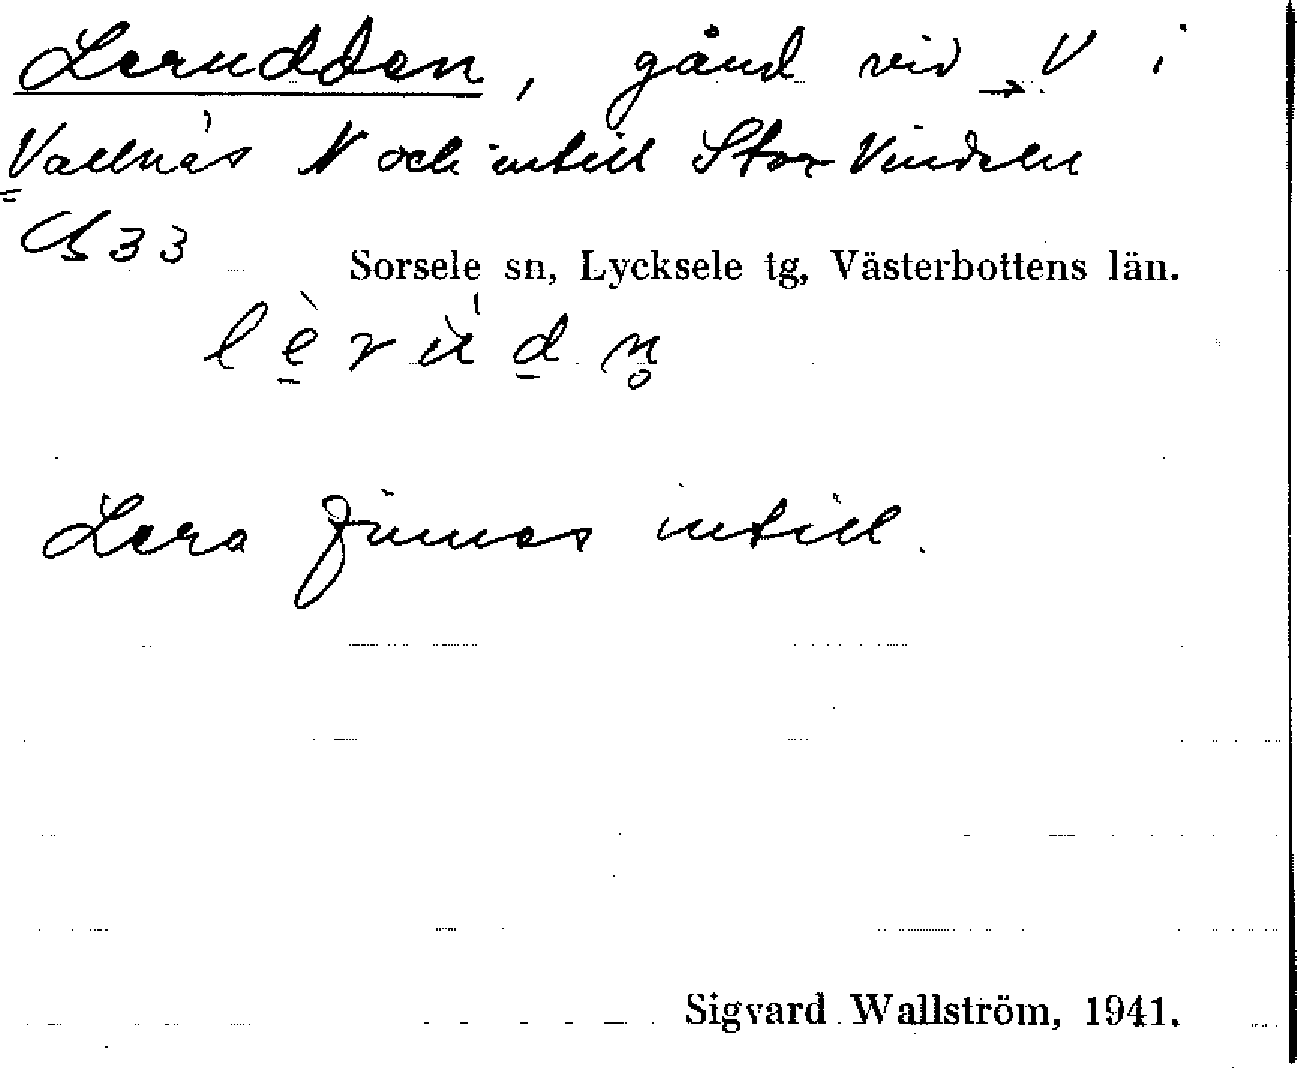 Lerudden, gård vid → V i
Vallnäs N och intill Stor Vindeln
33
Sorsele sn, Lycksele tg, Västerbottens län.
lèrùdn̥
Lera finnes intill.
Sigvard Wallström, 1941.